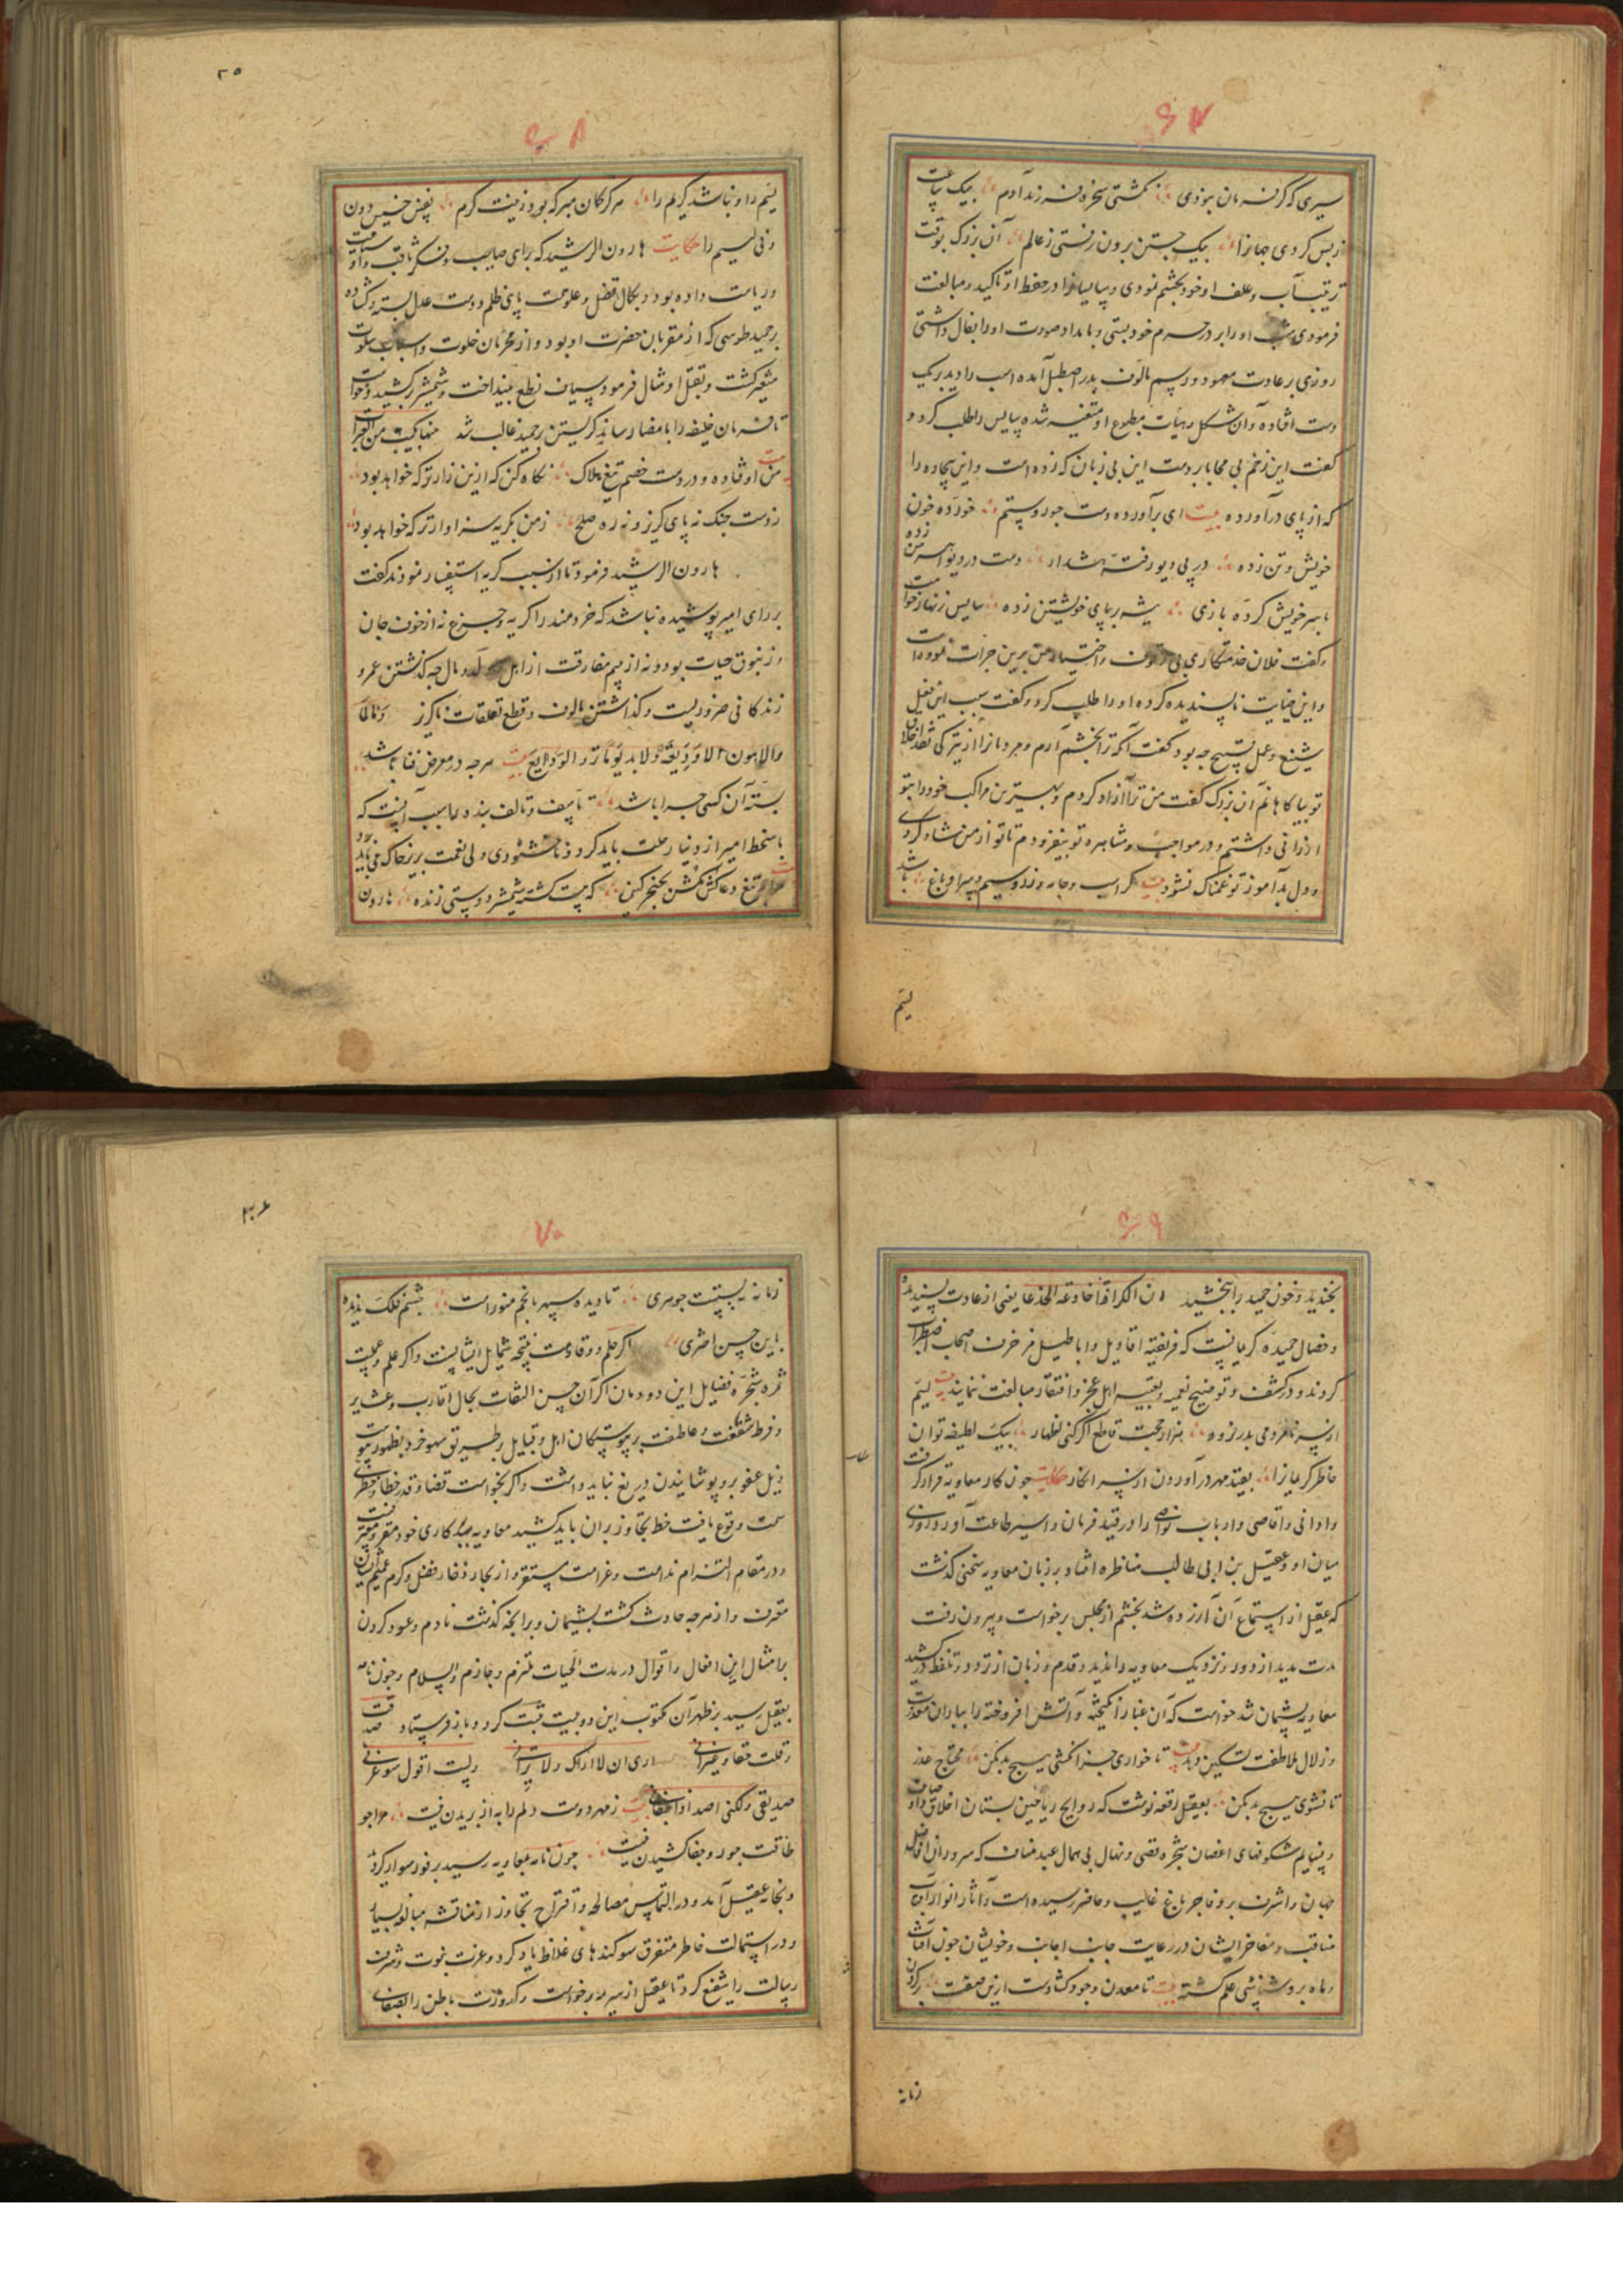 سیری که گر فرمان بود وی ز کشتی سخره فرزند آدم بیک ساعت
ز پس کردی جهانرا بیک جستن برون رفتی ز عالم آن بزرک بوقت
ترتیب آب و علف او خود بچشم نمودی و سایسانرا در حفظ او تاکید و مبالغت
فرمودی شب او را بر در حرم خود بستی و بامداد صورت او را بفال داشتی
روزی بر عادت معهود و رسم مالوف بدر اصطبل آمد اسب را دید بر یک
دست افتاده و آن شکل و هیات مطبوع او متغیر شده سایس را طلب کرد و
کفت این زخم بی محابا بر دست این بی زبان که زده است و این بیچاره را
که از پای درآورده بیت ای برآورده دست جور و ستم خورده خون
خویش و تن زده در پی دیو رفته هشدار دست در دیو
با سر خویش کرده بازی تیشه بر پای خویشتن زده سایس زنهار خواست
و کفت فلان خدمتکار بی و اختیار من برین جرات نموده است
و این خیانت ناپسندیده کرده او را طلب کرد و کفت سبب این فعل
شنیع و عمل قبیح چه بود کفت آنکه ترا بخشم آرم و
تو بیاکاهانم آن بزرک کفت من ترا آزاد کردم و بهترین مراکب خود را بتو
ارزانی داشتم و در مواجب و مشاهره تو بیفزودم تا تو از من شاد کردی
و دل بدآموز تو غمناک نشود بیت کر اسب و جامه و زر و سیم و سرا و باغ باشد
لیم
۳۵
۶۸
لیم را و نباشد کریم را هر کر کان مبر که بود زینت کرم نفس خسیس دون
دنی لیم را حکایت هارون الرشید که برای صایب و فکر ثاقب داد
و ریاست داده بود و بکمال فضل و علو همت پای ظلم و دست عدل بسته و کشاده
بر حمید طوسی که از مقربان حضرت او بود و از محرمان خلوت و اسباب سلوت
متغیر کشت و بقتل او مثال فرمود سیاف نطع بینداخت و شمشیر برکشید و خواست
تا فرمان خلیفه را بامضا رساند کریستن بر حمید غالب شد
من اوفتاده و در دست خصم تیغ هلاک نکاه کن که ازین زارتر که خواهد بود
ز دست جنک نه پای کریز و نه ره صلح ز من بکریه سزاوارتر که خواهد بود
هارون الرشید فرمود تا از سبب کریه استفسار نمودند کفت
بر رای امیر پوشیده نباشد که خردمند را کریه و جزع نه از خوف جان
و ذوق حیات بود و نه از بیم مفارقت از اهل و مال چه کذشتن عمر و
زندکانی ضروریست و کذاشتن مالوف و قطع تعلقات ناکزیر و ما المال
والاهلون الا ودیعة و لا بد یوما ان ترد الودایع بیت هر چه در معرض فنا باشد
بسته آن کسی چرا باشد تاسف و تالف بنده را سبب آنست که
با سخط امیر از دنیا رحلت باید کرد و ناخشنودی ولی نعمت بزیر خاک می باید برد
تیغ دعا کش مکش بخنجر کین که هست کشته شمشیر دوستی زنده هارون
۶۹
بخندید و خون حمید را ببخشید ان الکریم اذا خادعته انخدعا یعنی از عادت پسندیده
و خصال حمیده کرما نیست که فریفته اقاویل و اباطیل مزخرف اصحاب اضطرار
کردند و در کشف و توضیح تعمیه و تعبیه اهل عجز و افتقار مبالغت نمایند بیت لیم
از سر نامردمی بدر نرود هزار حجت قاطع اکر کنی اظهار بیک لطیفه توان
خاطر کریمانرا بقید مهر درآوردن از سر انکار حکایت چون کار معاویه قرار کرفت
و ادانی و اقاصی و ارباب نواصی را در قید فرمان و اسیر طاعت آورد روزی
میان او و عقیل بن ابی طالب مناظره افتاد و بر زبان معاویه سخنی کذشت
که عقیل از استماع آن آزرده شد بخشم از مجلس برخواست و بیرون رفت
مدت مدید از دور و نزدیک معاویه را ندید و قدم و زبان از تردد و تلفظ درکشید
معاویه پشیمان شد خواست که آن غبار انکیخته و آتش افروخته را بباران معذرت
و زلال ملاطفت تسکین دهد بیت تا خواری جزا نکشی هیچ بد مکن محتاج عذر
تا نشوی هیچ بد مکن بعقیل رقعه نوشت که روایح ریاحین بستان اخلاق
و نسایم شکوفهای اغصان شجره قصی و نهال بی همال عبد مناف که سروران افاضل
جهان را شرف بر و فاجر باغ غایب و حاضر رسیده است و آثار انوار
مناقب و مفاخر ایشان در رعایت جانب اجانب و خویشان چون آفتاب
و ماه بروشنائی علم کشته بیت تا معدن وجود کشادست ازین صفت
زمانه
۳۶
۷۰
زمانه نه بسیت جوهری تا دیده سپهر بانجم منور است چشم فلک ندیده
باین حسن اختری اکر حلم و وقار است نتیجه شمایل ایشانست و اکر علم و
ثمره شجره فضایل این دودمان اکر آن حسن التفات بحال اقارب و عشایر
و فرط شفقت و عاطفت بر پیوستکان اهل و قبایل بر طریق سهو خرده بظهور پیوست
ذیل عفو برو پوشانیدن دریغ نباید داشت و اکر نخواست قضا و قدر خطا و خطری
سمت وقوع یافت خط تجاوز بران باید کشید معاویه بخطاکاری خود مقر و معترفست
و در مقام التزام ندامت و غرامت مستقر و از بحار ذخار فضل و کرم عمیم ایشان
مغترف و از هر چه حادث کشت پشیمان و بر انچه کذشت نادم و عود کردن
بر امثال این افعال و اقوال در مدت الحیات ملتزم و جازم والسلام و چون نامه
بعقیل رسید بر ظهر آن مکتوب این دو بیت ثبت کرد و باز فرستاد
اری ان لا اراک ولا ترانی ولست اقول سوءا فی
صدیقی ولکنی اصد اذا جفانی بیت ز مهر دوست دلم را به از بریدن نیست مرا چو
طاقت جور و جفا کشیدن نیست چون نامه بمعاویه رسید بر فور سوار کرد
و بخانه عقیل آمد و در التماس مصالحه و اقتراح تجاوز از مناقشه مبالغه بسیار
و در استمالت خاطر متفرق سوکندهای غلاظ یاد کرد و عزت نبوت و شرف
رسالت را شفیع کرد تا عقیل از سر برخواست و کدورت باطن را بصفای